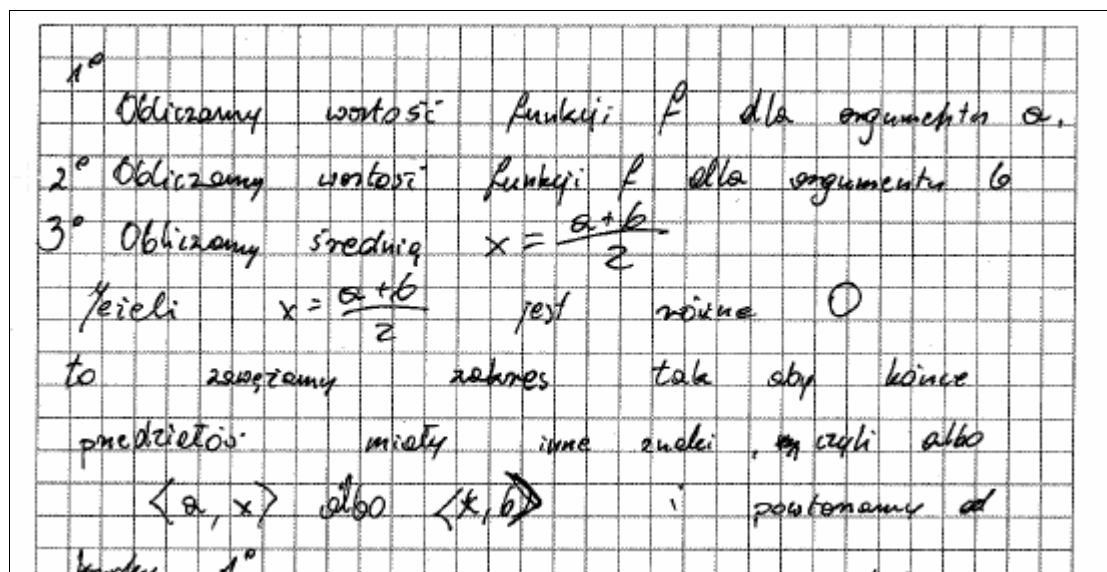 1°
Obliczamy wartość funkcji f dla argumentu a.
2° Obliczamy wartość funkcji f dla argumentu b
3° Obliczamy średnią x = (a+b)/2
Jeżeli x = (a+b)/2 jest równe 0
to zawężamy zakres tak aby końce
przedziałów miały inne znaki, czyli albo
<a, x> albo <x, b> i powtarzamy od
1°